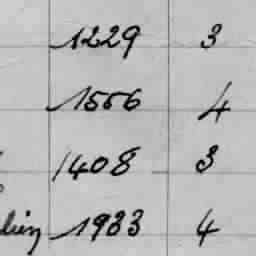 1229 3
1556 4
1408 3
1933 4